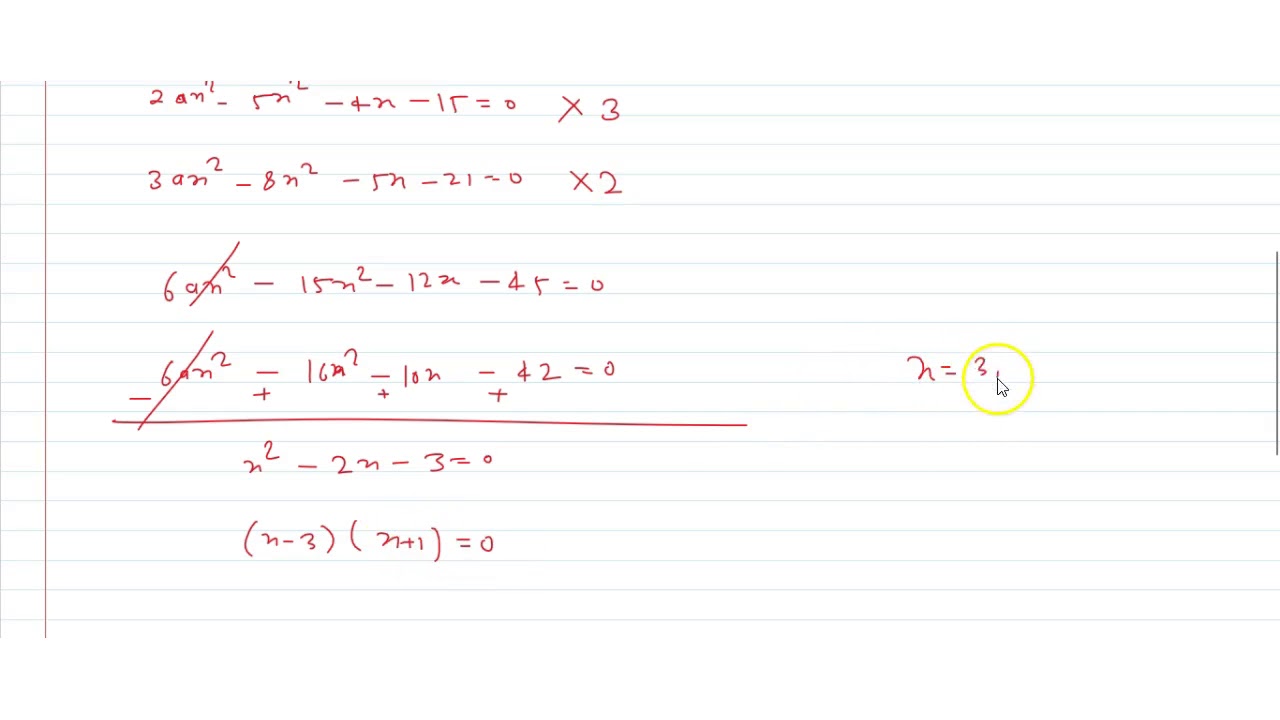 2ax² - 5x² - 4x - 15 = 0 × 3
3ax² - 8x² - 5x - 21 = 0 × 2
6ax² - 15x² - 12x - 45 = 0
6ax² - 16x² - 10x - 42 = 0
- + + +
x² - 2x - 3 = 0
(x-3)(x+1) = 0
x = 3,